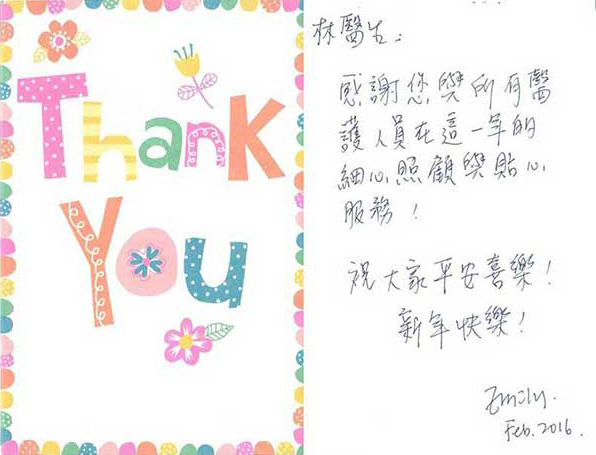 Thank
You
林醫生：
感謝您與所有醫
護人員在這一年的
細心照顧與貼心
服務！
祝大家平安喜樂！
新年快樂！
Emily.
Feb. 2016.